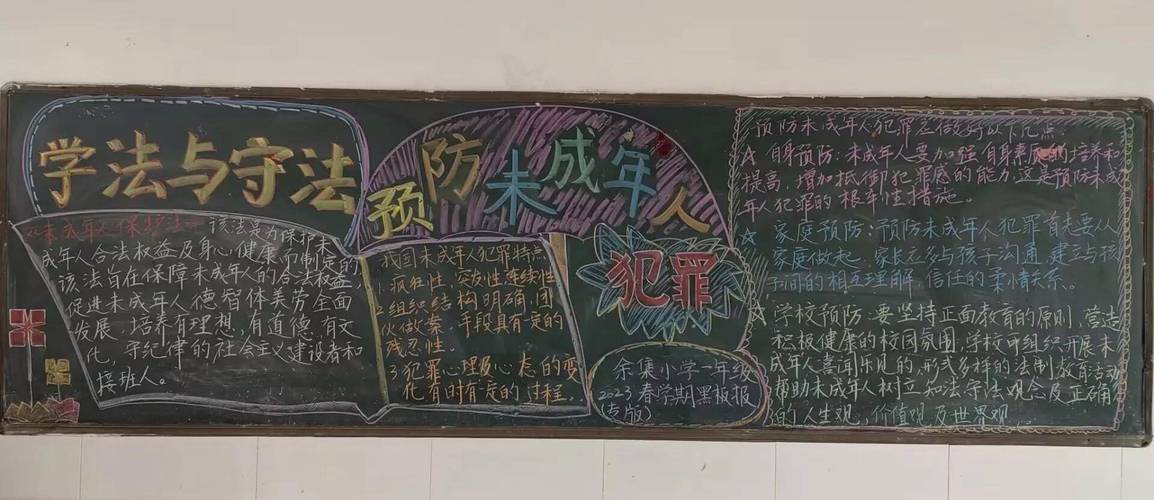 学法与守法
《未成年人保护法》该法是为保护未
成年人合法权益及身心健康而制定的
该法旨在保障未成年人的合法权益
促进未成年人德智体美劳全面
发展 培养有理想,有道德,有文
化,守纪律的社会主义建设者和
接班人。
预防未成年人
犯罪
我国未成年人犯罪特点
1.疯狂性,突发性,连续性
2.组织结构明确,团
伙做案,手段具有一定的
残忍性。
3.犯罪心理及心态的变
化有时有定的过程。
余集小学一年级
2023春学期黑板报
(专版)
预防未成年人犯罪应做好以下几点
☆自身预防:未成年人要加强自身素质的培养和
提高,增加抵御犯罪感的能力这是预防未成
年人犯罪的根本性措施。
☆家庭预防:预防未成年人犯罪首先要从
家庭做起,家长应多与孩子沟通,建立与孩
子间的相互理解,信任的柔情关系。
☆学校预防:要坚持正面教育的原则,营造
积极健康的校园氛围,学校可组织开展未
成年人喜闻乐见的,形式多样的法制教育活动
帮助未成年人树立知法守法观念及正确
的人生观,价值观及世界观。